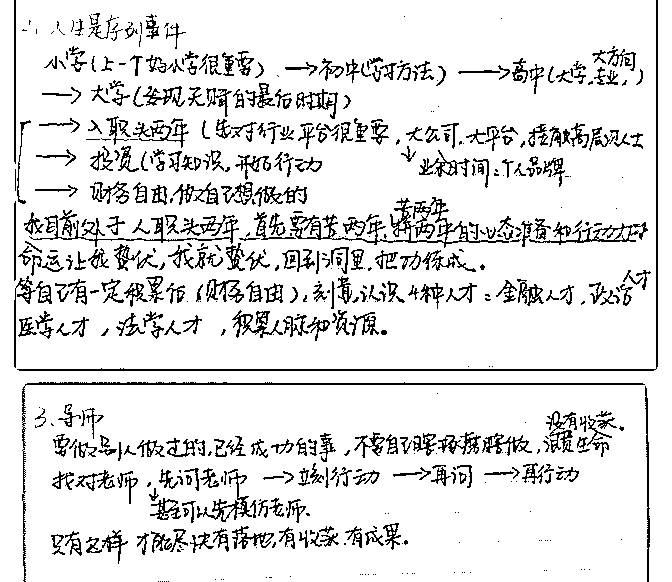 人生是序列事件
小学(上一个好小学很重要) → 初中(学习方法) → 高中(大学,专业,大方向)
→ 大学(发现天赋的最后时期)
→ 入职头两年(选对行业平台很重要,大公司,大平台,接触高层次人士
→ 投资(学习知识,开始行动 ↓业余时间:个人品牌
→ 财务自由,做自己想做的
我目前处于入职头两年,首先要有苦两年,苦两年的心态准备和行动力
命运让我蛰伏,我就蛰伏,回到洞里,把功练成。
等自己有一定积累后(财务自由),刻意认识4种人才:金融人才,政治人才
医学人才,法学人才,积累人脉和资源。
3、导师
要做别人做过的,已经成功的事,不要自己瞎琢磨瞎做,浪费生命没有收获。
找对老师,先问老师 → 立刻行动 → 再问 → 再行动
↓甚至可以先模仿老师.
只有这样才能尽快有落地,有收获,有成果。